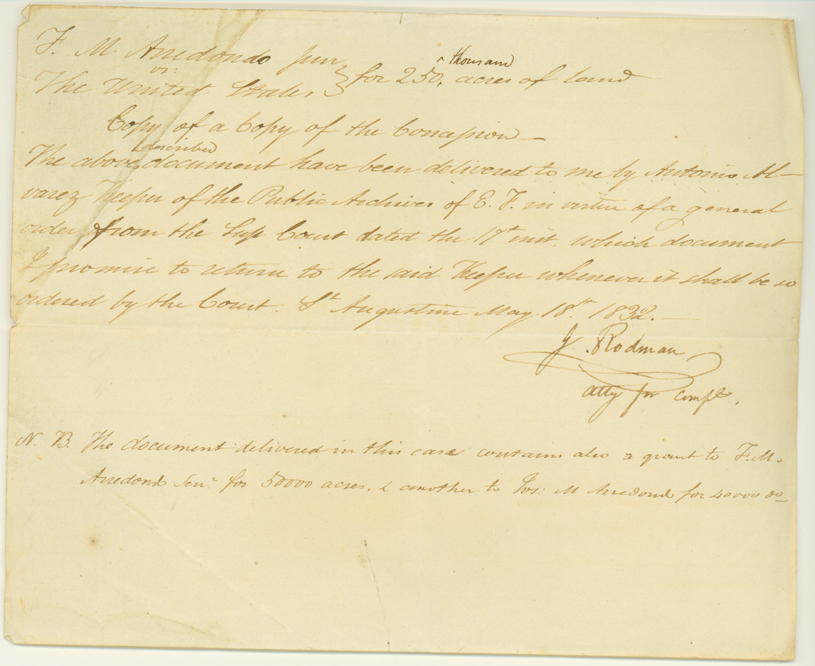 F. M Arredondo jun
vs:
The United States } for 250, ^thousand acres of land
Copy of a Copy of the Concession —
The above ^described document have been delivered to me by Antonio Al-
varez Keeper of the Public Archives of E. F. in vertue of a general
order from the Sup Court dated the 17th inst. which document
I promise to return to the said Keeper whenever it shall be so
ordered by the Court. St Augustine May 18th 1832. —
J. Rodman
atty for complt.
N. B. The document delivered in this case contains also a grant to F. M.
Arredond Senr for 50000 acres, & another to Jos: M Arredond for 40000 do